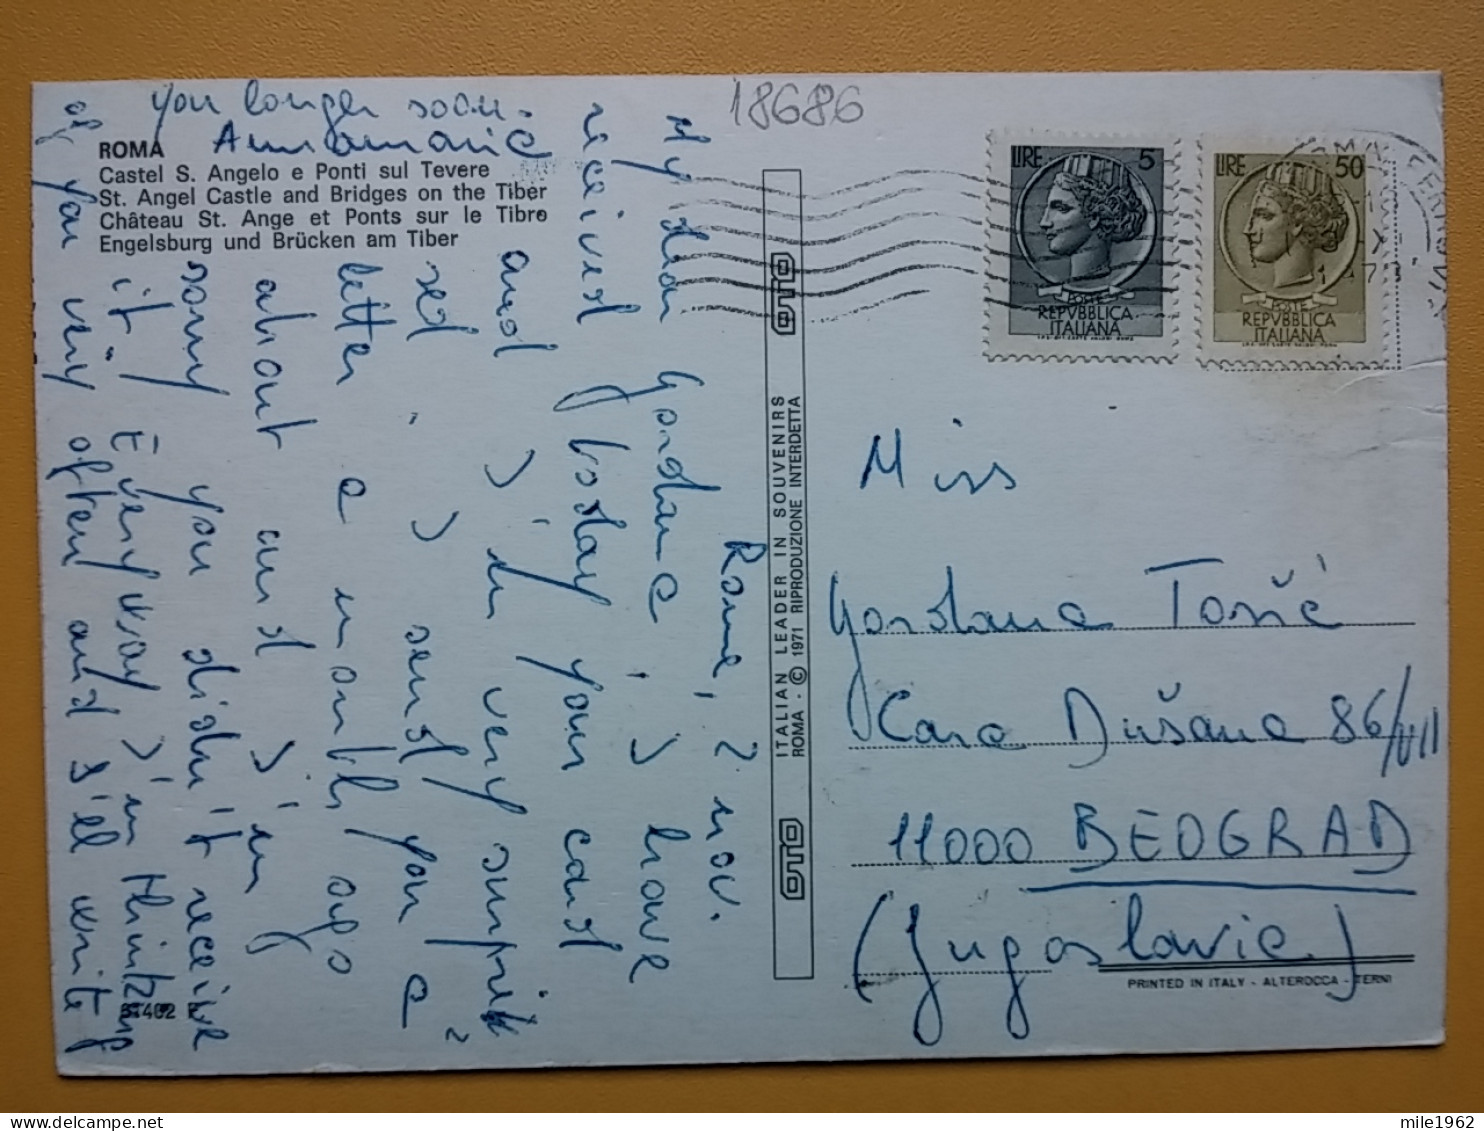 18686
ROMA
Castel S. Angelo e Ponti sul Tevere
St. Angel Castle and Bridges on the Tiber
Château St. Ange et Ponts sur le Tibre
Engelsburg und Brücken am Tiber
Rome, 2 nov.
My dear Gordana, I have
received today your card
and I'm very surprise
sed, I send you a
letter, a month ago
about and I'm
sorry you didn't receive
it. Everyway I'm thinking
of you very often and I'll write
you longer soon.
Annamaria
OTO
ITALIAN LEADER IN SOUVENIRS
ROMA - © 1971 RIPRODUZIONE INTERDETTA
OTO
LIRE 5
POSTE
REPVBBLICA
ITALIANA
LIRE 50
POSTE
REPVBBLICA
ITALIANA
Miss
Gordana Tošić
Cara Dušana 86/VII
11000 BEOGRAD
(Jugoslavia)
PRINTED IN ITALY - ALTEROCCA - TERNI
mile1962